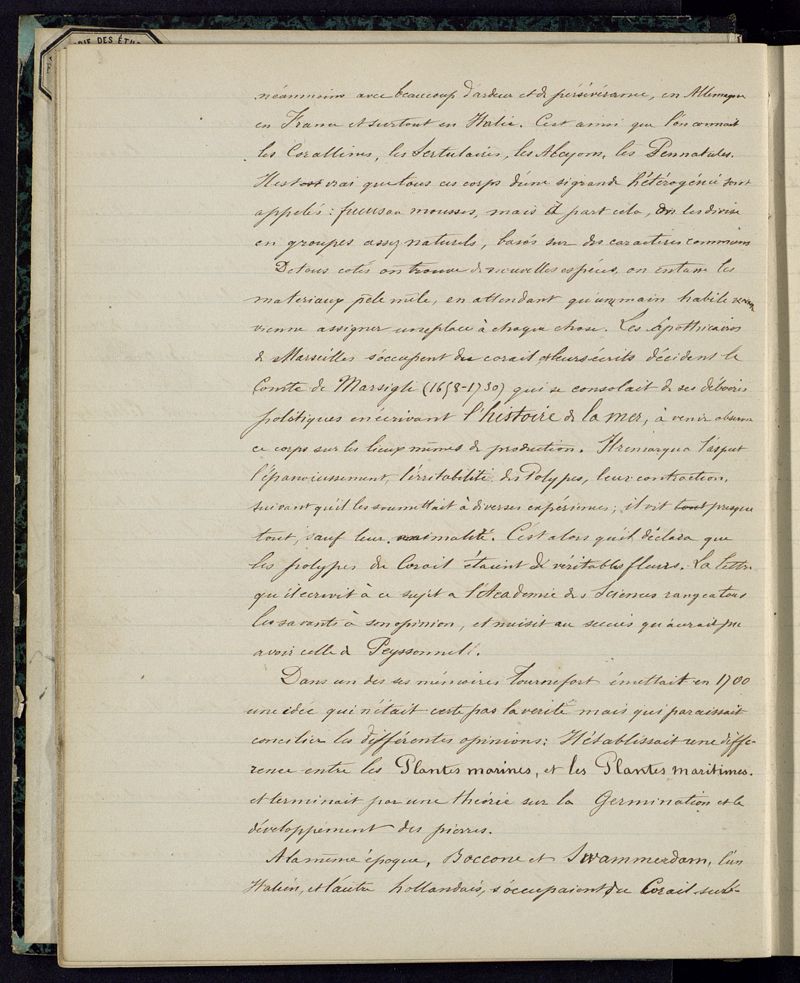 RIE DES ÉTU
néanmoins avec beaucoup d'ardeur et de persévérance, en Allemagne
en France et surtout en Italie. C'est ainsi que l'on connait
les Corallines, les Sertulaires, les Alcyons, les Pennatules.
Il est vrai que tous ces corps d'une si grande hétérogénié sont
appelés : fucus ou mousses, mais à part cela, on les divise
en groupes assez naturels, basés sur des caractères communs
De tous cotés on trouve de nouvelles espèces, on entasse les
materiaux pêle mêle, en attendant qu'une main habile
vienne assigner une place à chaque chose. Les Apothicaires
de Marseilles s'occupent du corail, et leurs écrits décident le
Comte de Marsigli (1658-1730) qui se consolait de ses déboires
politiques en écrivant l'histoire de la mer, à venir observer
ce corps sur les lieux mêmes de production. Il remarqua l'aspect
l'épanouissement, l'irritabilité des Polypes, leur contraction,
suivant qu'il les soumettait à diverses expériences ; il vit tout presque
tout, sauf leur animalité. C'est alors qu'il déclara que
les polypes du Corail étaient de véritables fleurs. La lettre
qu'il écrivit à ce sujet a l'Académie des Sciences rangea tous
les savants à son opinion, et nuisit au succès qu'aurait pu
avoir celle de Peyssonnell.
Dans un des ses mémoires Tournefort émettait en 1700
une idée qui n'était certe pas la vérité mais qui paraissait
concilier les différentes opinions : Il établissait une diffé-
rence entre les Plantes marines, et les Plantes maritimes.
et terminait par une théorie sur la Germination et le
développement des pierres.
A la même époque, Boccone et Swammerdam, l'un
Italien, et l'autre hollandais, s'occupaient du Corail